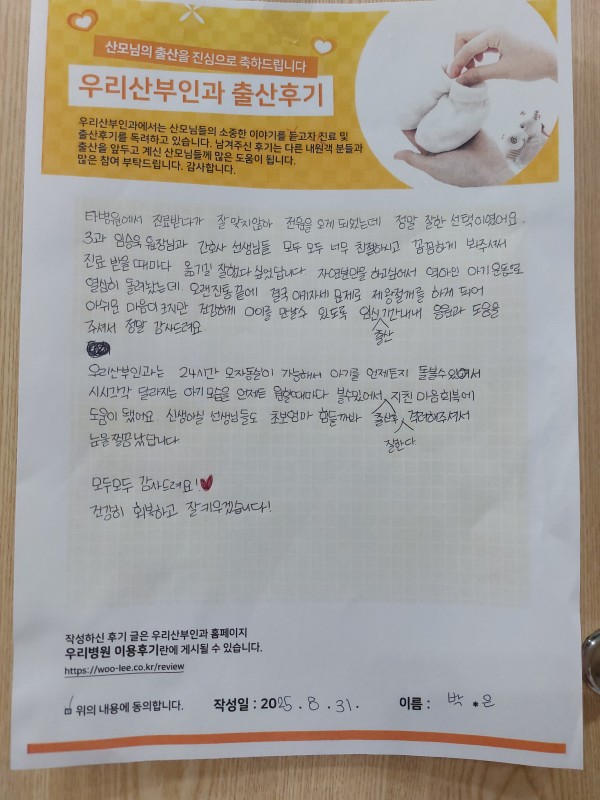 산모님의 출산을 진심으로 축하드립니다
우리산부인과 출산후기
우리산부인과에서는 산모님들의 소중한 이야기를 듣고자 진료 및
출산후기를 독려하고 있습니다. 남겨주신 후기는 다른 내원객 분들과
출산을 앞두고 계신 산모님들께 많은 도움이 됩니다.
많은 참여 부탁드립니다. 감사합니다.
타병원에서 진료받다가 잘 맞지않아 전원을 오게 되었는데 정말 잘한 선택이였어요.
3과 임승욱 원장님과 간호사 선생님들 모두 모두 너무 친절하시고 꼼꼼하게 봐주셔서
진료 받을때마다 옮기길 잘했다 싶었답니다 자연분만을 하고싶어서 역아인 아기 운동도
열심히 돌려놨는데 오랜진통 끝에 결국 아기자세 문제로 제왕절개를 하게 되어
아쉬운 마음이 크지만 건강하게 아이를 만날수 있도록 임신기간내내 응원과 도움을
출산
주셔서 정말 감사드려요
우리산부인과는 24시간 모자동실이 가능해서 아기를 언제든지 돌볼수있어서
시시각각 달라지는 아기 모습을 언제든 원할때마다 볼수있어서 지친 마음 회복에
도움이 됐어요 신생아실 선생님들도 초보엄마 힘들까봐 출산후 격려해주셔서
잘한다
눈물찔끔났답니다
모두모두 감사드려요!♥
건강히 회복하고 잘키우겠습니다!
작성하신 후기 글은 우리산부인과 홈페이지
우리병원 이용후기란에 게시될 수 있습니다.
https://woo-lee.co.kr/review
위의 내용에 동의합니다. 작성일 : 2025. 8. 31. 이름 : 박 * 은